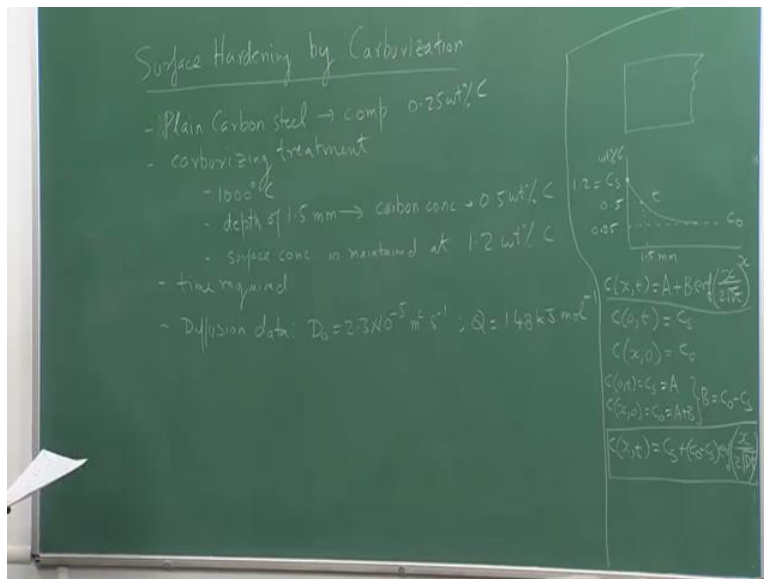 Surface Hardening by Carburization
- Plain Carbon steel → comp 0.25 wt% C
- carburizing treatment
- 1000°C
- depth of 1.5 mm → carbon conc → 0.5 wt% C
- surface conc is maintained at 1.2 wt% C
- time required
- Diffusion data: D₀ = 2.3×10⁻⁵ m² s⁻¹ ; Q = 148 kJ mol⁻¹
wt%C
1.2 = Cs
0.5
t
0.25
C₀
1.5 mm
x
C(x,t) = A + B erf(x/2√Dt)
C(0,t) = Cs
C(x,0) = C₀
C(0,t) = Cs = A
C(x,0) = C₀ = A+B } B = C₀ - Cs
C(x,t) = Cs + (C₀-Cs) erf(x/2√Dt)